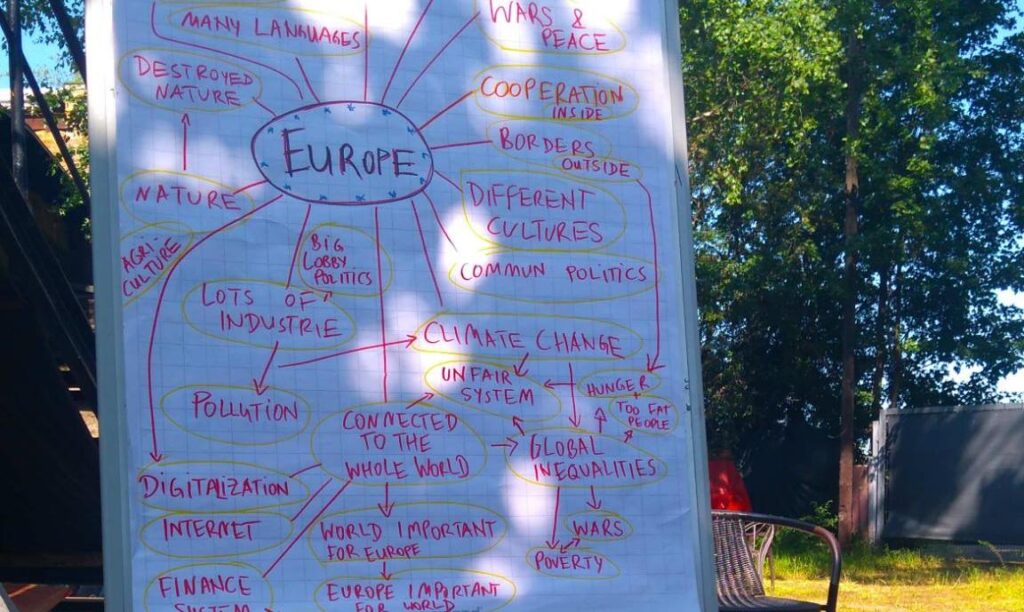 MANY LANGUAGES
WARS &
PEACE
DESTROYED
NATURE
COOPERATION
INSIDE
EUROPE
BORDERS
OUTSIDE
NATURE
DIFFERENT
CULTURES
AGRI
CULTURE
BIG
LOBBY
POLITICS
COMMUN POLITICS
LOTS OF
INDUSTRIE
CLIMATE CHANGE
UNFAIR
SYSTEM
HUNGER
+
TOO FAT
PEOPLE
POLLUTION
CONNECTED
TO THE
WHOLE WORLD
GLOBAL
INEQUALITIES
DIGITALIZATION
INTERNET
WORLD IMPORTANT
FOR EUROPE
WARS
POVERTY
FINANCE
SYSTEM
EUROPE IMPORTANT
FOR WORLD